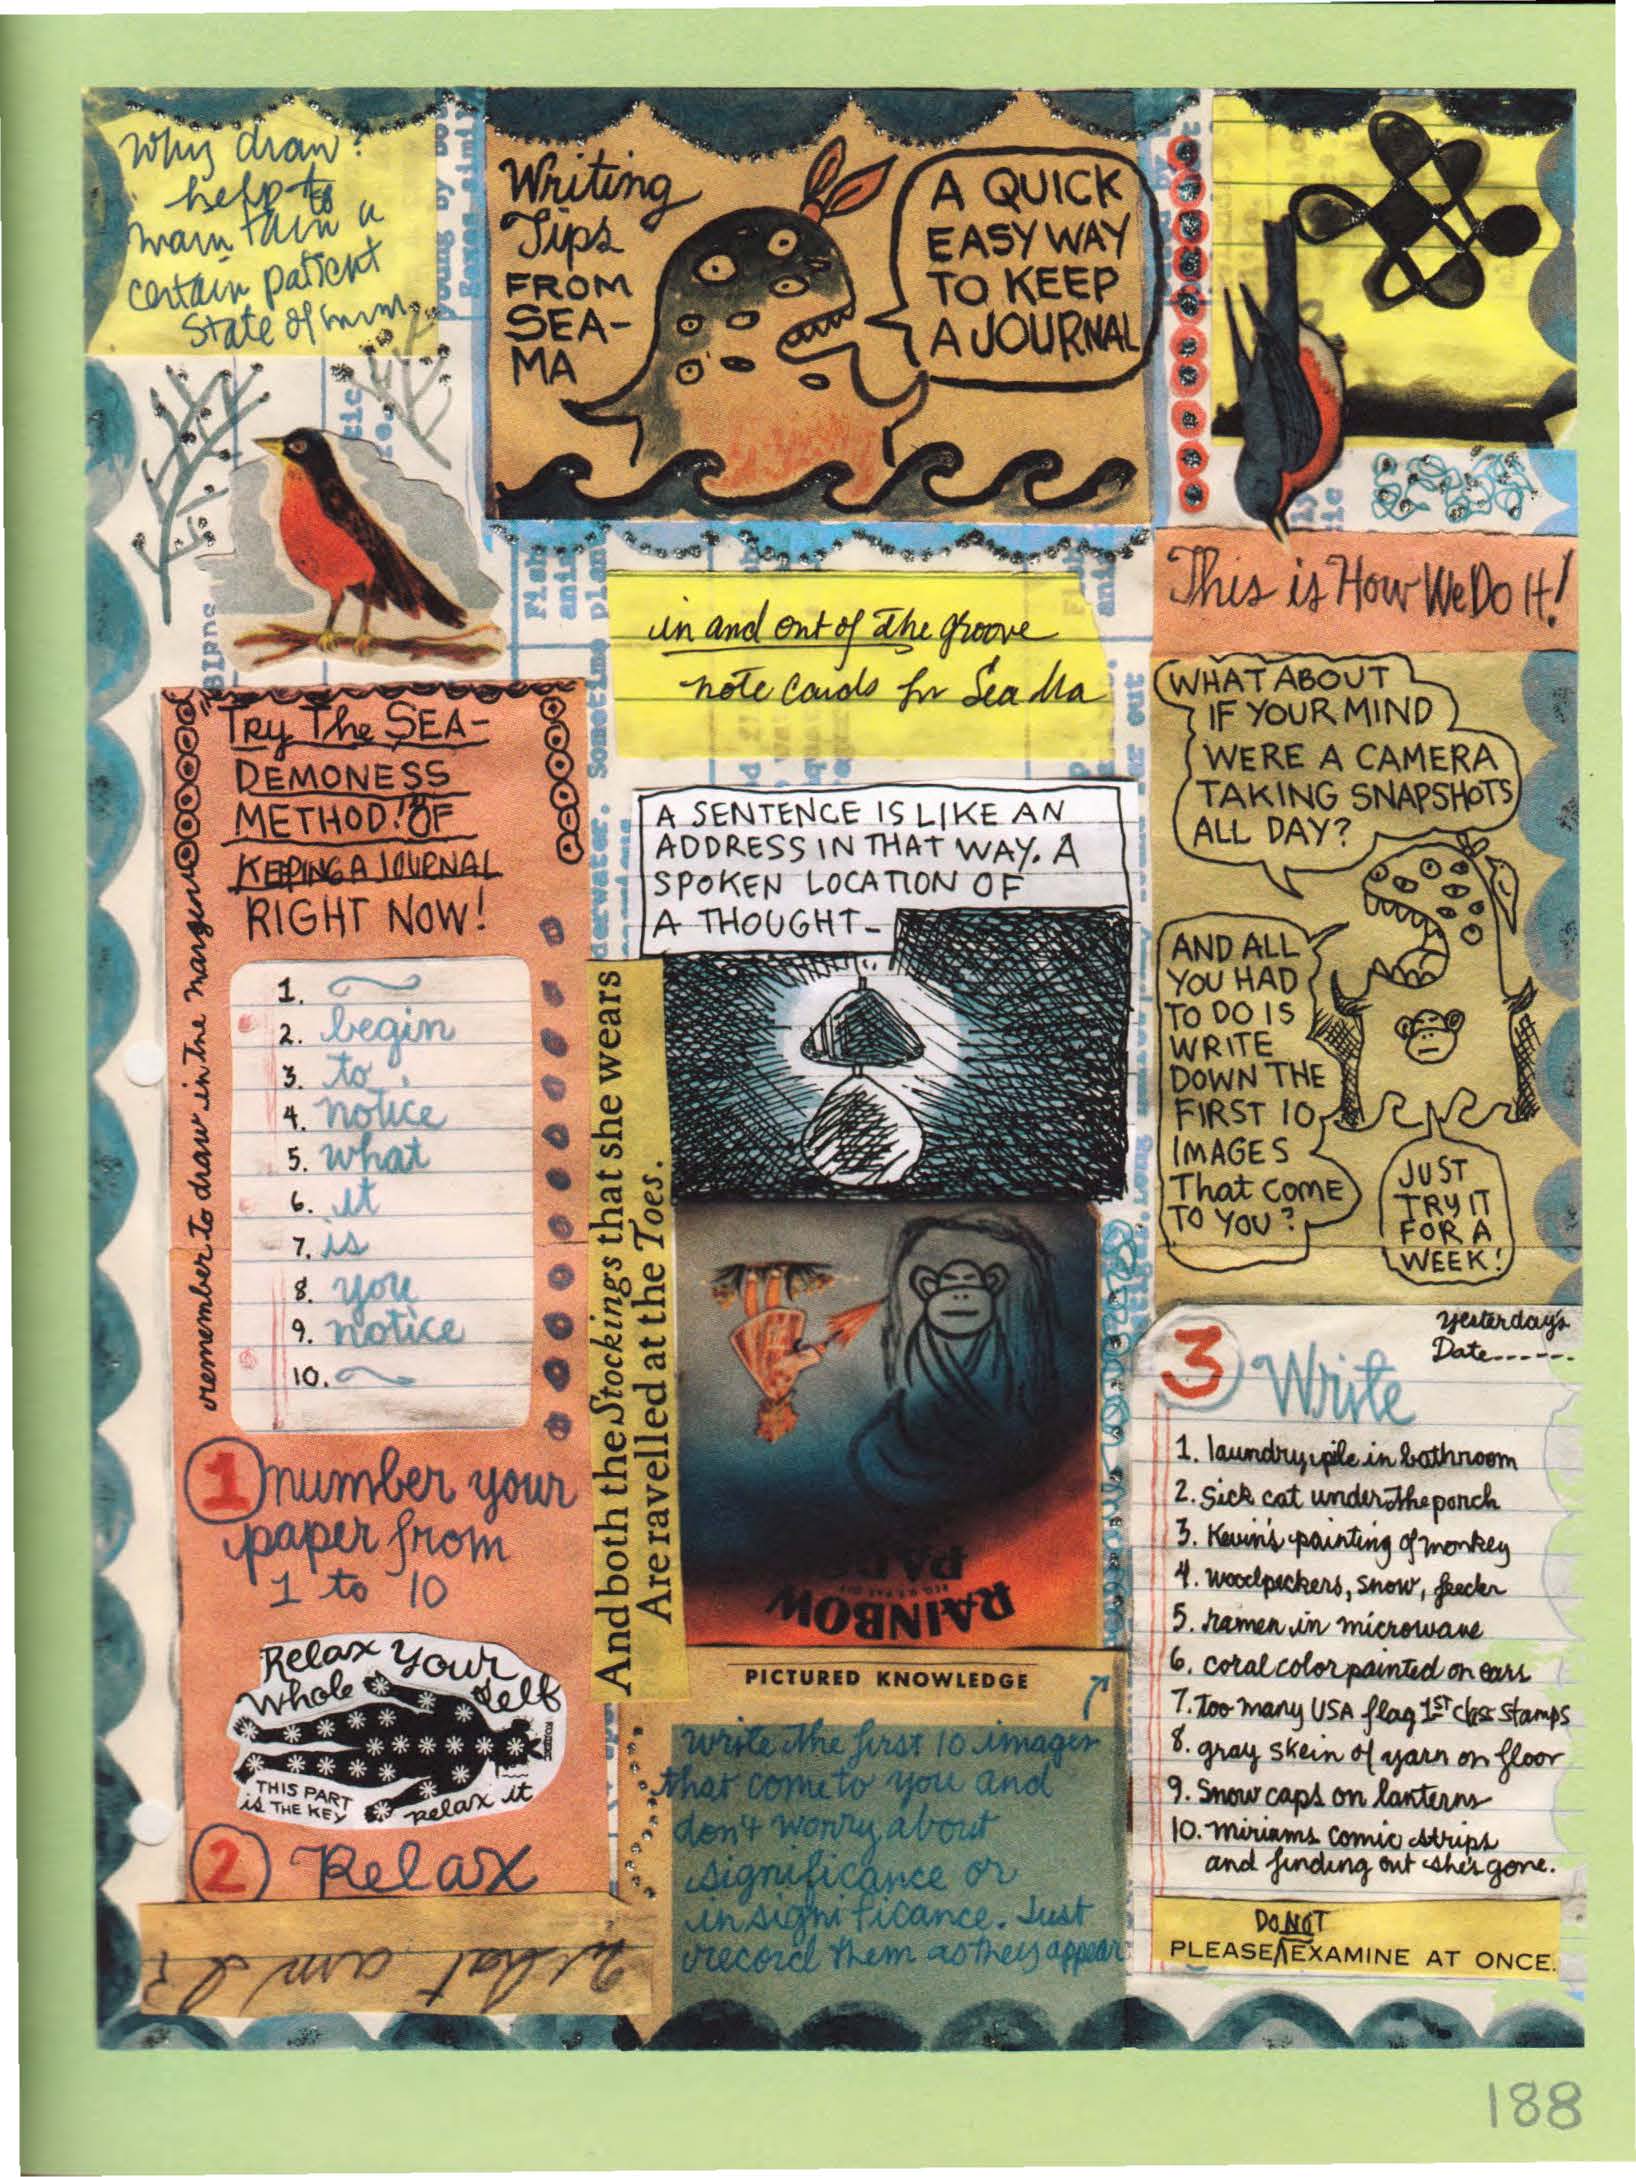 Why draw?
help to
maintain a
certain patient
state of mind
Writing
Tips
FROM
SEA-
MA
A QUICK
EASY WAY
TO KEEP
A JOURNAL
This is How We Do It!
in and out of the groove
note cards for Sea Ma
Try The SEA-
DEMONESS
METHOD! OF
KEEPING A JOURNAL
RIGHT NOW!
remember to draw in the margens
1.
2. begin
3. to
4. notice
5. what
6. it
7. is
8. you
9. notice
10.
1 number your
paper from
1 to 10
Relax Your
Whole Self
THIS PART
is THE KEY
relax it
2 Relax
what am I?
A SENTENCE IS LIKE AN
ADDRESS IN THAT WAY. A
SPOKEN LOCATION OF
A THOUGHT-
And both the Stockings that she wears
Are ravelled at the Toes.
RAINBOW
PICTURED KNOWLEDGE
write the first 10 images
that come to you and
don't worry about
significance or
insignificance. Just
record them as they appear
WHAT ABOUT
IF YOUR MIND
WERE A CAMERA
TAKING SNAPSHOTS
ALL DAY?
AND ALL
YOU HAD
TO DO IS
WRITE
DOWN THE
FIRST 10
IMAGES
That COME
TO YOU?
JUST
TRY IT
FOR A
WEEK!
yesterday's
Date------
3 Write
1. laundry pile in bathroom
2. Sick cat under the porch
3. Kevin's painting of monkey
4. woodpeckers, snow, feeder
5. ramen in microwave
6. coral color painted on ears
7. Too many USA flag 1ST class stamps
8. gray skein of yarn on floor
9. Snow caps on lanterns
10. miriams comic strips
and finding out she's gone.
DO NOT
PLEASE EXAMINE AT ONCE.
BIRDS
188